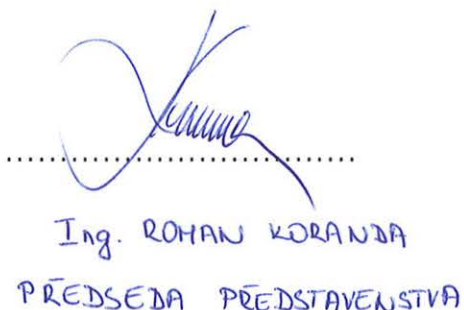 Ing. ROMAN KORANDA
PŘEDSEDA PŘEDSTAVENSTVA